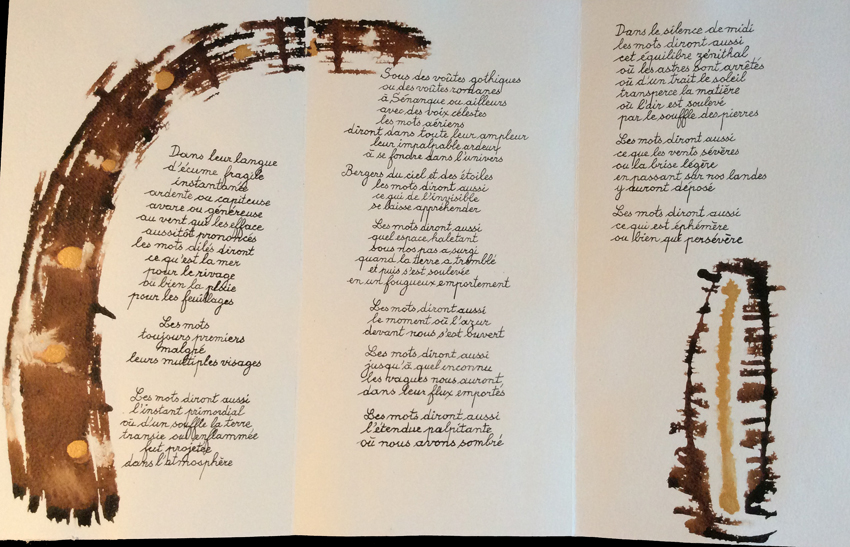 Dans leur langue
d'écume fragile
instantanée
ardente ou capiteuse
avare ou généreuse
au vent qui les efface
aussitôt prononcés
les mots ailés diront
ce qu'est la mer
pour le rivage
ou bien la pluie
pour les feuillages
Les mots
toujours premiers
malgré
leurs multiples visages
Les mots diront aussi
l'instant primordial
où d'un souffle la terre
transie ou enflammée
fut projetée
dans l'atmosphère
Sous des voûtes gothiques
ou des voûtes romanes
à Sénanque ou ailleurs
avec des voix célestes
les mots aériens
diront dans toute leur ampleur
leur impalpable ardeur
à se fondre dans l'univers
Bergers du ciel et des étoiles
les mots diront aussi
ce qui de l'invisible
se laisse appréhender
Les mots diront aussi
quel espace haletant
sous nos pas a surgi
quand la terre a tremblé
et puis s'est soulevée
en un fougueux emportement
Les mots diront aussi
le moment où l'azur
devant nous s'est ouvert
Les mots diront aussi
jusqu'à quel inconnu
les vagues nous auront
dans leur flux emportés
Les mots diront aussi
l'étendue palpitante
où nous avons sombré
Dans le silence de midi
les mots diront aussi
cet équilibre zénithal
où les astres sont arrêtés
où d'un trait le soleil
transperce la matière
où l'air est soulevé
par le souffle des pierres
Les mots diront aussi
ce que les vents sévères
ou la brise légère
en passant sur nos landes
y auront déposé
Les mots diront aussi
ce qui est éphémère
ou bien qui persévère